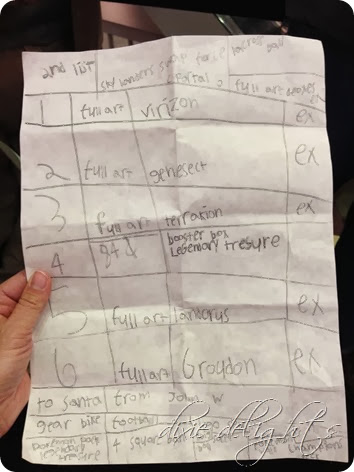 2nd list skylanders swap force lacross ball
portal full art deoxes ex
1 full art virizon ex
2 full art genesect ex
3 full art terrakion ex
4 booster box Legendary tresure
5 full art ex
6 full art Groudon ex
to santa from John W
gear bike football
Pokemon pack legendary tresure 4 square
dixie delights